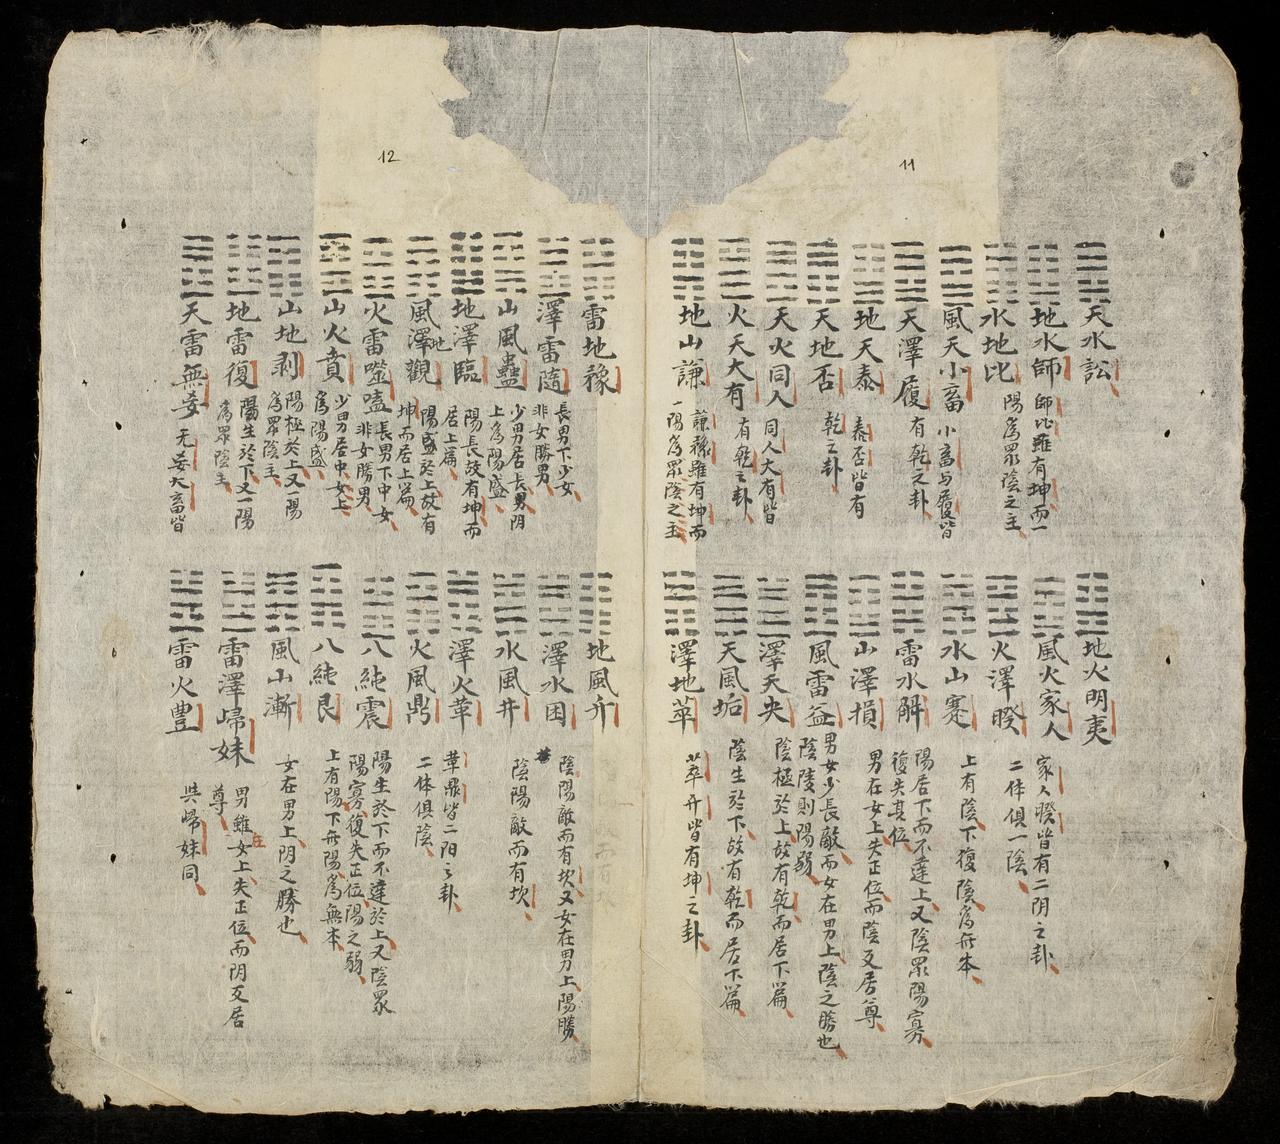 11
天水訟
地水師
師比雖有坤而一
水地比
陽爲眾陰之主
風天小畜
小畜与履皆
天澤履
有乾之卦
地天泰
泰否皆有
天地否
乾之卦
天火同人
同人大有皆
火天大有
有乾之卦
地山謙
謙豫雖有坤而
一陽爲眾陰之主
地火明夷
風火家人
家人暌皆有二阴之卦
火澤暌
二体俱一陰
水山蹇
上有陰下復陰爲無本
雷水解
陽居下而不達上又陰眾陽寡
復失其位
山澤損
男在女上失正位而陰反居尊
風雷益
男女少長敵而女在男上陰之勝也
陰陵則陽弱
澤天夬
陰極於上故有乾而居下篇
天風垢
陰生於下故有乾而居下篇
澤地萃
萃升皆有坤之卦
12
雷地豫
澤雷隨
長男下少女
非女勝男
山風蠱
少男居長男阴
上爲陽盛
地澤臨
陽長故有坤而
居上篇
風澤地觀
陽盛於上故有
坤而居上篇
火雷噬嗑
長男下中女
非女勝男
山火賁
少男居中女上
爲陽盛
山地剥
陽極於上又一陽
爲眾陰主
地雷復
陽生於下又一陽
爲眾陰主
天雷無妄
无妄大畜皆
地風升
澤水困
陰陽敵而有坎又女在男上陽勝
水風井
陰陽敵而有坎
澤火革
革鼎皆二阳之卦
火風鼎
二体俱陰
八純震
陽生於下而不達於上又陰眾
陽寡復失正位陽之弱
八純艮
上有陽下無陽爲無本
風山漸
女在男上阴之勝也
雷澤歸妹
男雖在女上失正位而阴反居
尊
雷火豊
與歸妹同